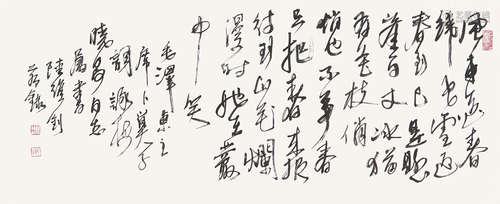 風雨送春
歸飛雪迎
春到已是懸
崖百丈冰猶
有花枝俏
俏也不争春
只把春来报
待到山花爛
漫时她在叢
中笑
毛澤東主
席卜算子
詞詠梅
同志
書
陸維釗